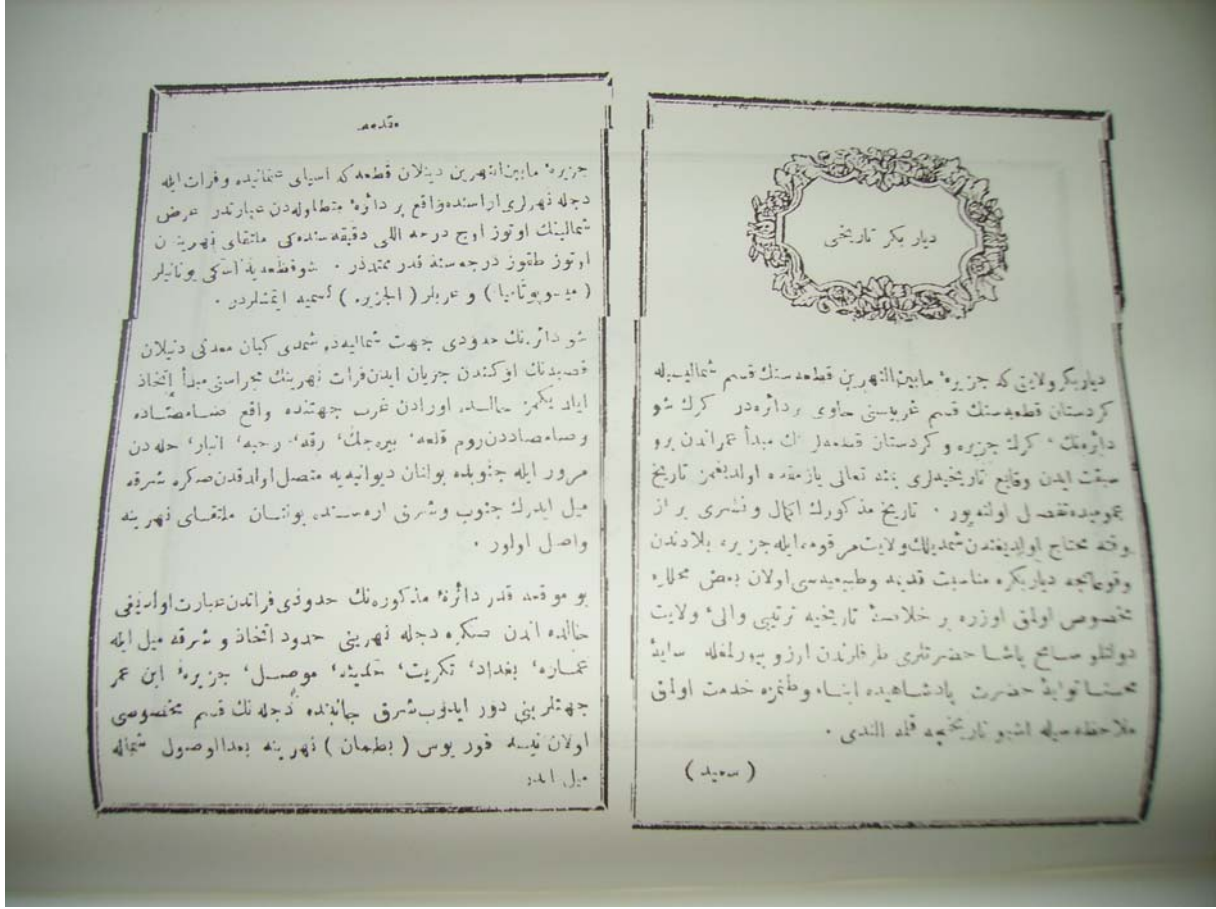 دیار بکر تاریخی
دیاربکر ولایتی که جزیرهٔ مابین النهرین قطعه سنك قسم شمالیسیله
کردستان قطعه سنك قسم غربیسنی حاوی بر دائره در کرك شو
دائره نك ٬ کرك جزیره و کردستان قطعه لر نك مبدأ عمراندن برو
سبقت ایدن وقایع تاریخیه لری بمنه تعالی یازمقده اولدیغمز تاریخ
عمومیده تفصیل اولنه یور ٠ تاریخ مذکورك اکمال و نشری بر از
وقته محتاج اولدیغندن شمدیلك ولایت مرقومه ایله جزیره بلادندن
وقوعاتجه دیاربکره مناسبت قدیمه وطبیعیه سی اولان بعض محللره
مخصوص اولمق اوزره بر خلاصهٔ تاریخیه ترتیبی والیٔ ولایت
دولتلو سامح پاشا حضرتلری طرفلرندن ارزو بیورلمغله سایهٔ
حضرت پادشاهیده ابناء وطنمزه خدمت اولمق
ملاحظه سیله اشبو تاریخچه قلمه الندی ٠
( سعید )
مقدمه
جزیرهٔ مابین النهرین دینلان قطعه که اسیای عثمانیده و فرات ایله
دجله نهرلری اراسنده واقع بر دائرهٔ متطاوله دن عبارتدر عرض
شمالینك اوتوز اوچ درجه اللی دقیقه سنده کی ملتقای نهریندن
اوتوز طقوز درجه سنه قدر ممتددر ٠ شو قطعه یه اسکی یونانیلر
( میسوپوتامیا ) و عربلر ( الجزیره ) تسمیه ایتمشلردر ٠
شو دائره نك حدودی جهت شمالیه ده شمدی کبان معدنی دنیلان
قصبه نك اوکندن جریان ایدن فرات نهرینك مجراسنی مبدأ اتخاذ
ایلدیکمز حالده اورادن غرب جهتنده واقع
وصامصاددن روم قلعه ٬ بیره جك ٬ رقه ٬ رحبه ٬ انبار ٬ حله دن
مرور ایله جنوبده بولنان دیوانیه یه متصل اولدقدن صکره شرقه
میل ایدرك جنوب وشرق اره سنده بولنان ملتقای نهرینه
واصل اولور ٠
بو موقعه قدر دائرهٔ مذکوره نك حدودی فراتدن عبارت اولدیغی
حالده اندن صکره دجله نهرینی حدود اتخاذ و شرقه میل ایله
عماره ٬ بغداد ٬ تکریت ٬ حدیثه ٬ موصل ٬ جزیرهٔ ابن عمر
جهتلرینی دور ایدوب شرق جانبنده دجله نك قسم مخصوصی
اولان نیسه فور یوس ( بطمان ) نهرینه بعدالوصول شماله
میل ایدر